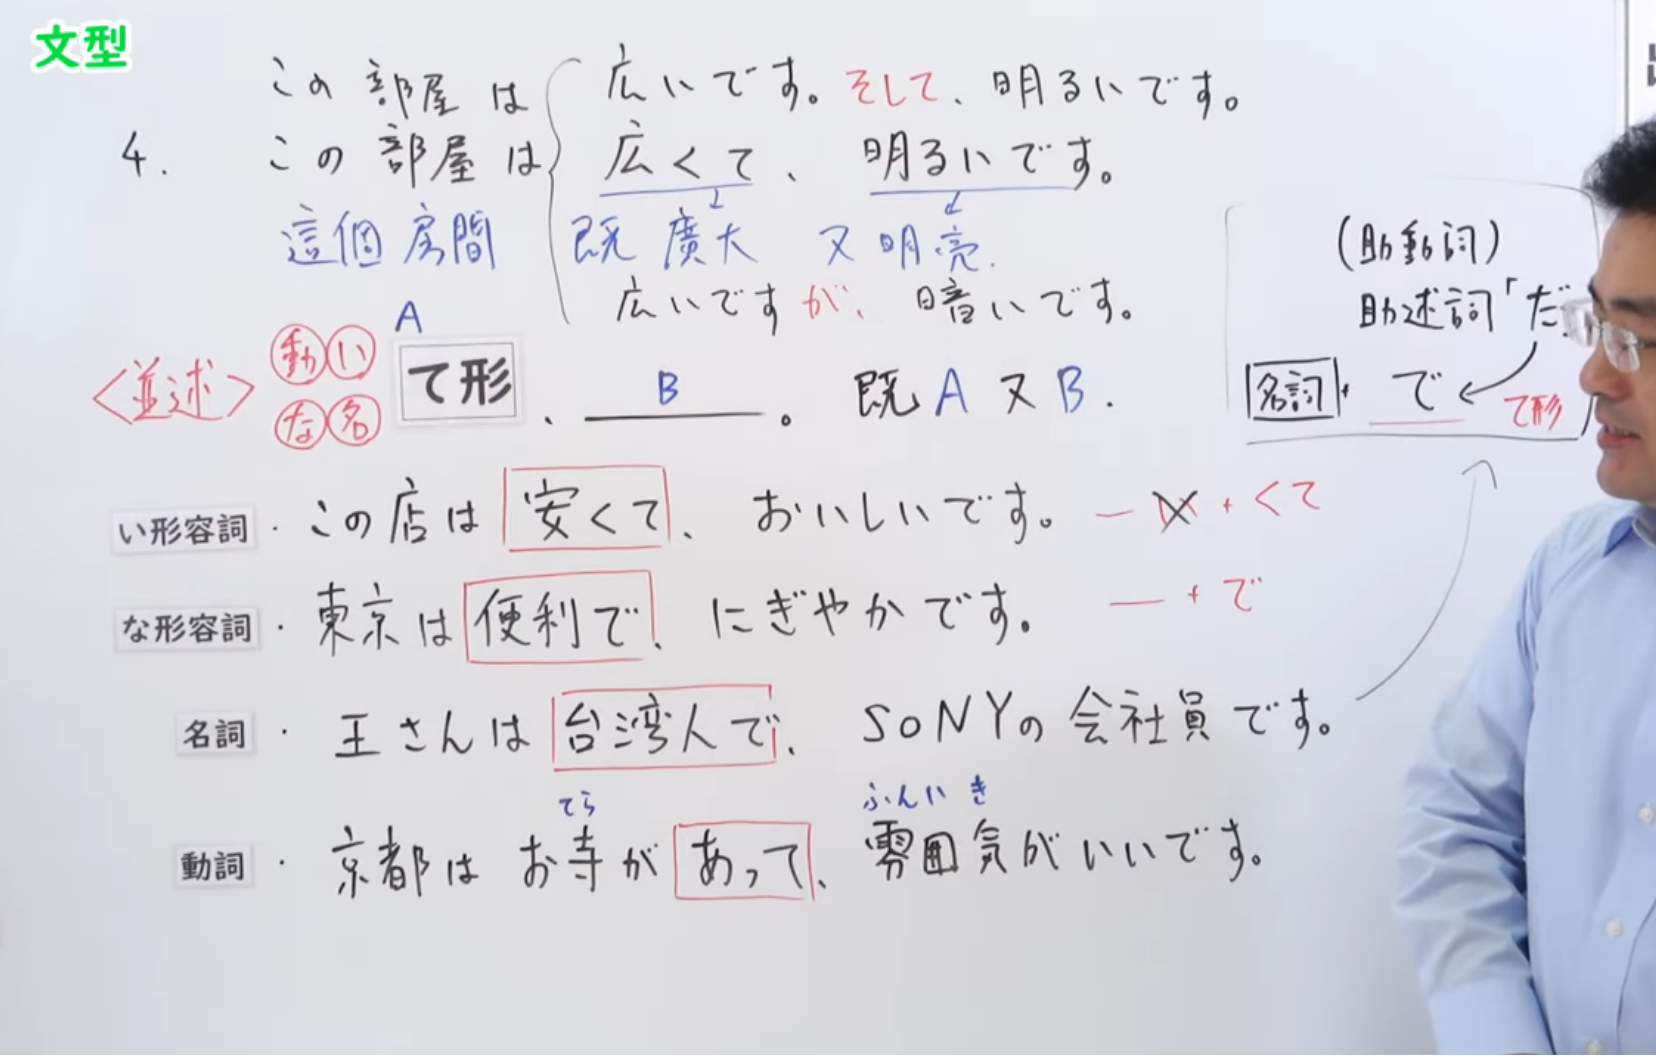 文型
この部屋は 広いです。そして、明るいです。
4. この部屋は 広くて、明るいです。
這個房間 既廣大 又明亮.
広いですが、暗いです。
(助動詞)
助述詞「だ
名詞 + で て形
A
<並述> 動 い な 名 て形、 B 。 既 A 又 B .
い形容詞 ・この店は 安くて、おいしいです。 — い + くて
な形容詞 ・東京は 便利で、にぎやかです。 — + で
名詞 ・王さんは 台湾人で、SONYの会社員です。
てら ふんいき
動詞 ・京都は お寺が あって、雰囲気がいいです。